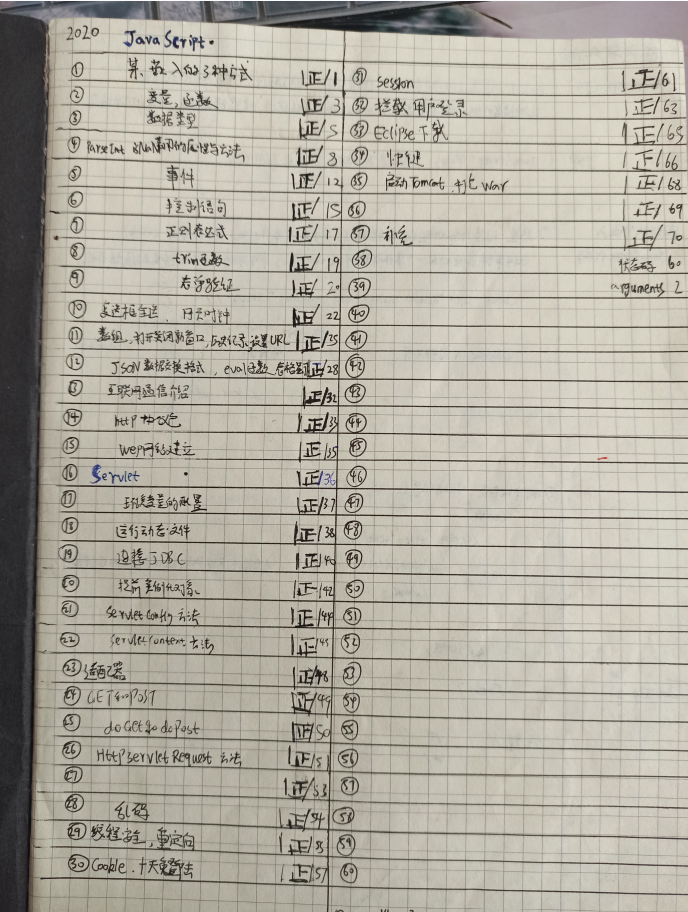 2020 JavaScript.
① 嵌入的3种方式 |正/1
② 变量,函数 |正/3
③ 数据类型 |正/5
④ parseInt isNaN 属性与方法 |正/8
⑤ 事件 |正/12
⑥ 控制语句 |正/15
⑦ 正则表达式 |正/17
⑧ trim函数 |正/19
⑨ 验证 |正/20
⑩ 复选框全选, 网页时钟 |正/22
⑪ 数组,打开关闭新窗口,历史记录,设置URL |正/25
⑫ JSON数据交换格式,eval函数, |正/28
⑬ 互联网通信介绍 |正/32
⑭ http协议包 |正/33
⑮ wep网站建立 |正/35
⑯ Servlet |正/36
⑰ 环境变量的配置 |正/37
⑱ 运行动态文件 |正/38
⑲ 连接JDBC |正/40
⑳ 提前实例化对象 |正/42
㉑ ServletConfig方法 |正/44
㉒ ServletContext方法 |正/45
㉓ 适配器 |正/48
㉔ GET和POST |正/49
㉕ doGet和doPost |正/50
㉖ HttpServletRequest方法 |正/51
㉗ |正/53
㉘ 乱码 |正/54
㉙ 线程安全,重定向 |正/55
㉚ Cookie.十天免登录 |正/57
㉛ session |正/61
㉜ 拦截用户登录 |正/63
㉝ Eclipse下载 |正/65
㉞ 快捷 |正/66
㉟ 启动Tomcat,打包war |正/68
㊱ |正/69
㊲ 补充 |正/70
㊳ 状态码 60
㊴ arguments 2
㊵
㊶
㊷
㊸
㊹
㊺
㊻
㊼
㊽
㊾
㊿
51
52
53
54
55
56
57
58
59
60